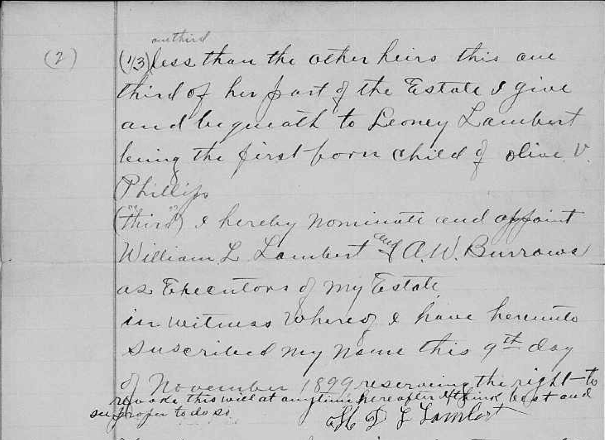 one third
(2) (1/3) less than the other heirs this one
third of her part of the Estate I give
and bequeath to Leoney Lambert
being the first born child of Olive V.
Phillips
("third") I hereby nominate and appoint
William L Lambert and A.W. Burrows
as Executors of my Estate
in witness whereof I have hereunto
suscribed my name this 9th day
of November 1899 reserving the right to
revoke this will at anytime hereafter I think best and
proper to do so
L Lambert